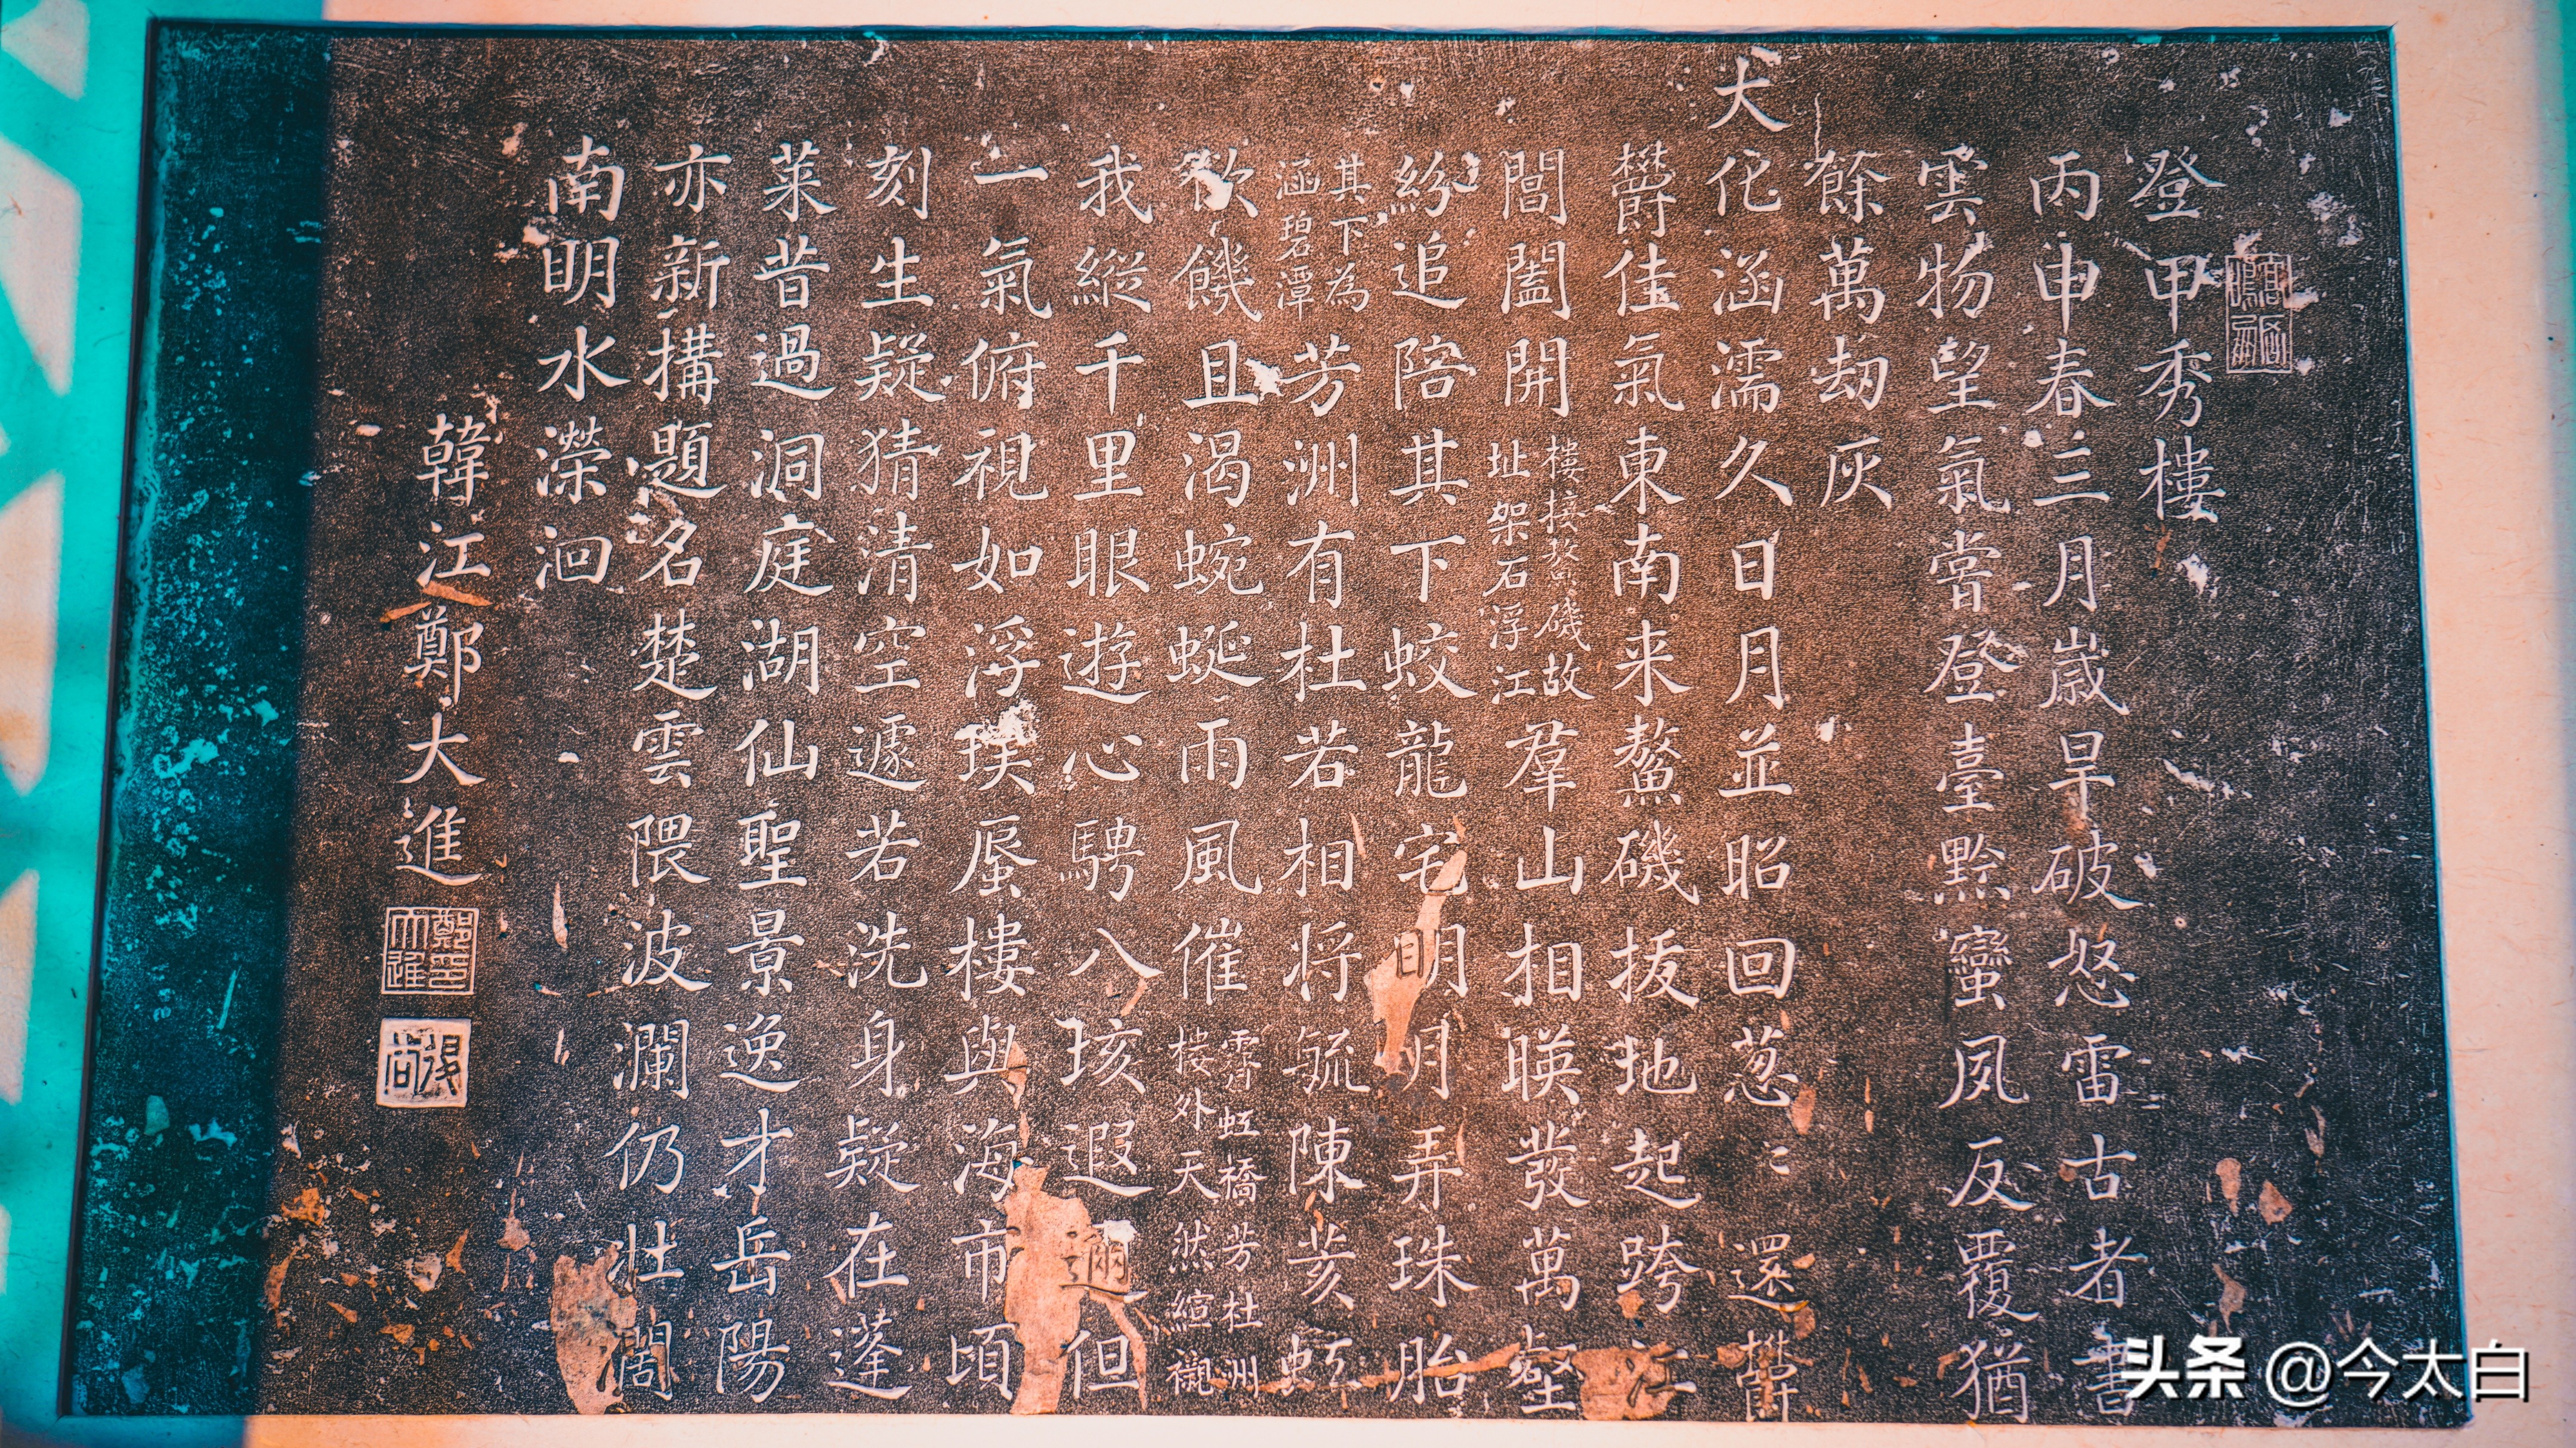 登甲秀樓
丙申春三月歲旱破怒雷古者書
雲物望氣嘗登臺黔蠻夙反覆猶
餘萬劫灰
大化涵濡久日月並昭回葱〻還欝
欝佳氣東南来鰲磯拔地起跨江
閶闔開樓接鰲磯故
址架石浮江羣山相暎發萬壑
紛追陪其下蛟龍宅明月弄珠胎
其下為
涵碧潭芳洲有杜若相将毓陳荄虹
飲饑且渴蜿蜒雨風催霽虹橋芳杜洲
樓外天然襯
我縱千里眼遊心騁八垓遐邇但
一氣俯視如浮埃蜃樓與海市頃
刻生疑猜清空遽若洗身疑在蓬
萊昔過洞庭湖仙聖景逸才岳陽
亦新搆題名楚雲隈波瀾仍壮闊
南明水濚洄
韓江鄭大進
鄭印大進
头条 @今太白